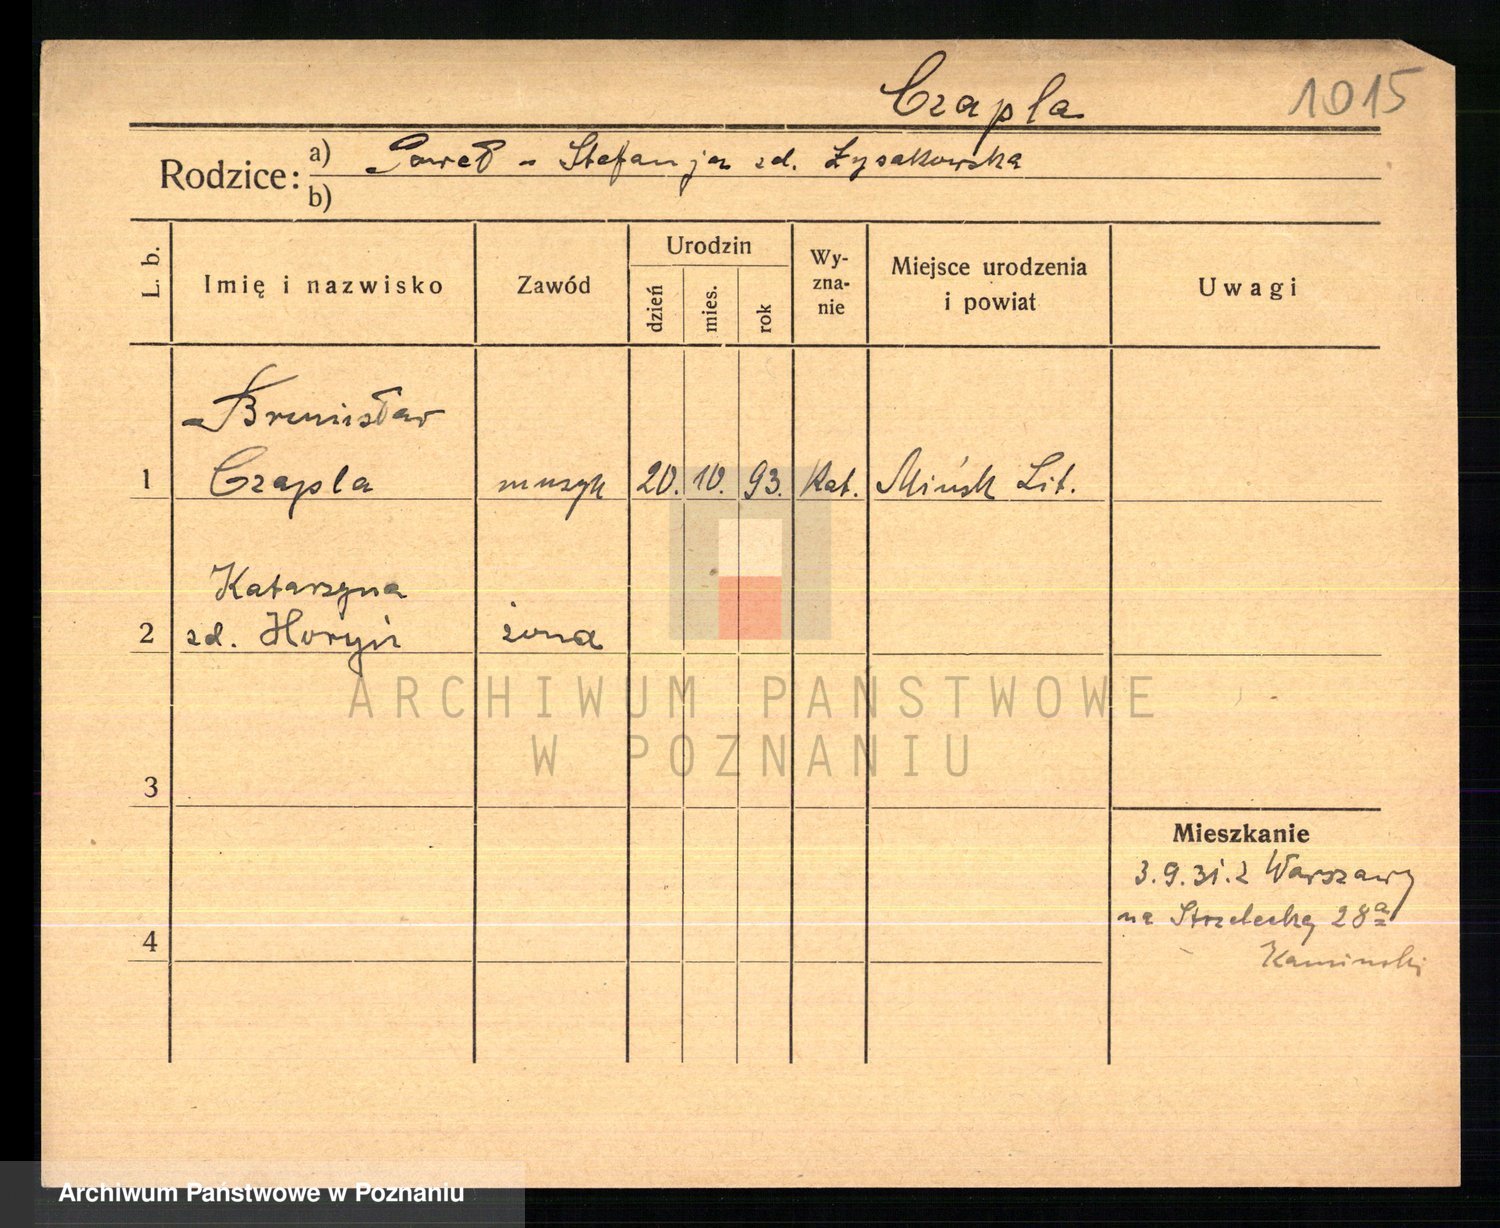 Czapla
1015
Rodzice: a) Paweł - Stefanja zd. Łysakowska
b)
L. b.
Imię i nazwisko
Zawód
Urodzin
dzień
mies.
rok
Wy-
zna-
nie
Miejsce urodzenia
i powiat
Uwagi
Bronisław
1 Czapla muzyk 20. 10. 93. Kat. Mińsk Lit.
Katarzyna
2 zd. Horyń żona
3
4
Mieszkanie
3.9.31. z Warszawy
na Strzelecką 28a
Kaminski
ARCHIWUM PAŃSTWOWE
W POZNANIU
Archiwum Państwowe w Poznaniu